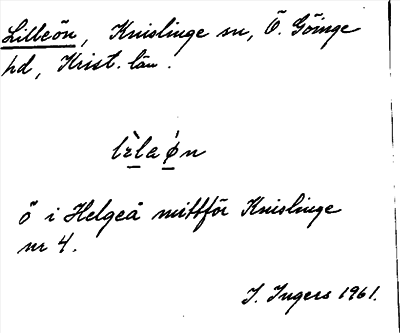 Lilleön, Knislinge sn, Ö. Göinge
hd, Krist. län.
lìla øn
ö i Helgeå mittför Knislinge
nr 4.
I. Ingers 1961.